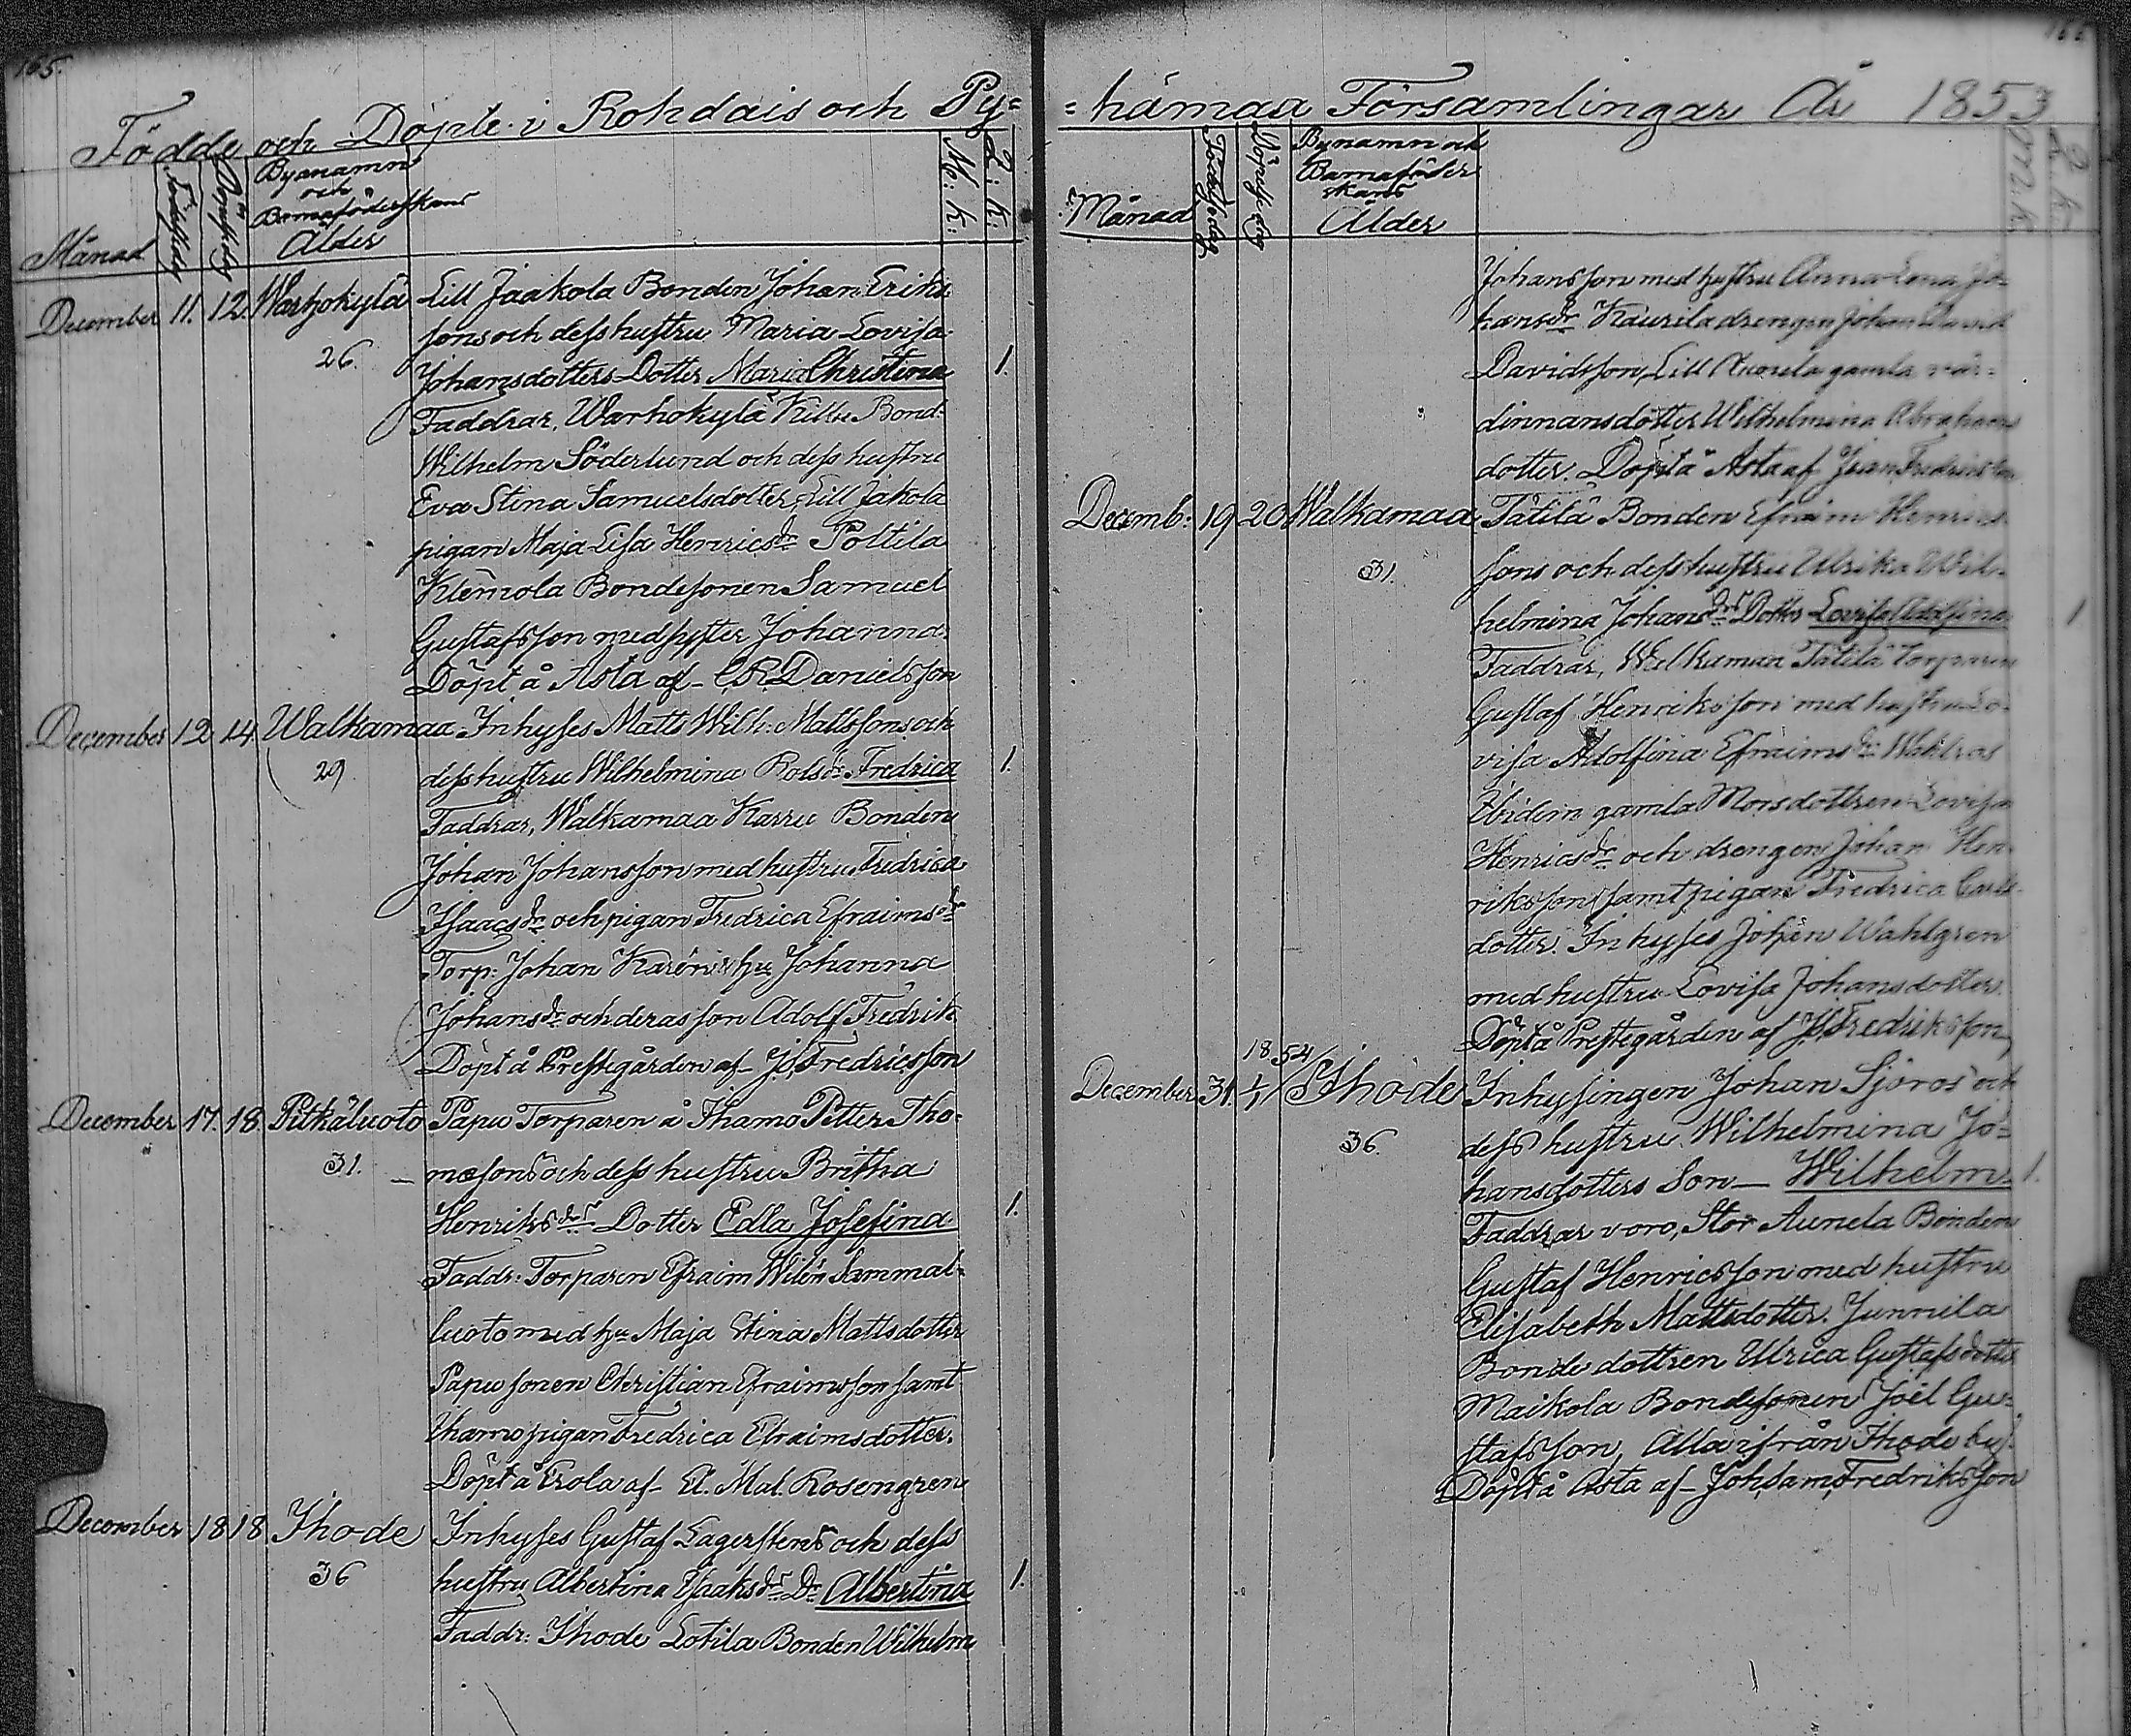 165.
Födde och Döpte i Rohdais och Py=
Månad
Födelsedag
Döpelsedag
Bynamn
och
Barnaföderskans
Ålder
M: k.
Q: k.
December 11. 12. Warhokylä Lill Jaakola Bonden Johan Eriks
sons och dess hustru Maria Lovisa
26. Johansdotters Dotter Maria Christina 1.
Faddrar, Warhokylä Bond:
Wilhelm Söderlund och dess hustru
Eva Stina Samuelsdotter, Lill Jakola
pigan Maja Lisa Henricsdr Poltila
Klemola Bondesonen Samuel
Gustafsson med syster Johanna.
Döpt å Asta af C.R. Danielsson
December 12 14. Walkamaa Inhyses Matts Wilh: Mattssons och
29 dess hustru Wilhelmina Fredrica 1.
Faddrar, Walkamaa Karru Bonden
Johan Johansson med hustru Fredrica
Isaacsdr och pigan Fredrica Efraimsdr
Torp: Johan Karén hu Johanna
Johansdr och deras son Adolf Fredrik
Döpt å Prestegården af J.S. Fredricsson
December 17. 18. Pitkäluoto Papu Torparen å Ihamo Petter Tho=
31. masons och dess hustru Britha
Henriksdrs Dotter Edla Josefina 1.
Faddr: Torparen Efraim Wilén Sammal=
luoto med hu Maja Stina Mattsdotter
Papu sonen Christian Efraimsson samt
Ihamo pigan Fredrica Efraimsdotter.
Döpt å Erola af El. Mal. Rosengren
December 18 18. Ihode Inhyses Gustaf Lagerstens och dess
36 hustru Albertina Isaksdrs Dr Albertina 1.
Faddr: Ihode Lotila Bonden Wilhelm
166
=hämaa Församlingar År 1853
Månad
Födelsedag
Döpelsedag
Bynamn och
Barnaföder
skans
Ålder
M. k.
Q. k.
Johansson med hustru Anna Lena Jo=
hansdr Kaurila drengen Johan David
Davidsson, Lill gamla vär=
dinnans dotter Wilhelmina Abrahams
dotter. Döpt å Asta af Fredricsson
Decemb: 19. 20. Walkamaa Tätilä Bonden Efraim Henrics
31. sons och dess hustru Ulrika Wil=
helmina Johansdrs Dotter Lovisa Adolfina 1
Faddrar, Walkamaa Tätilä Torparen
Gustaf Henriksson med hustru Lo=
visa Adolfina Efraimsdr Wahlros
Ibidem gamla Morsdottren Lovisa
Henricsdr och drengen Johan Hen=
riksson samt pigan Fredrica Carls=
dotter. Inhyses Johan Wahlgren
med hustru Lovisa Johansdotter.
Döpt å Prestegården af J.S. Fredriksson
1854
December 31. 1/1 Ihode Inhysingen Johan Sjöros och
36. dess hustru Wilhelmina Jo=
hansdotters Son — Wilhelm. 1.
Faddrar voro, Stor Aunela Bonden
Gustaf Henricsson med hustru
Elisabeth Mattsdotter. Junnila
Bonde dottren Ulrica Gustafsdotter
Maikola Bondesonen Joel Gu=
stafsson, Alla ifrån Ihode by.
Döpt å Asta af Joh. Sam. Fredriksson